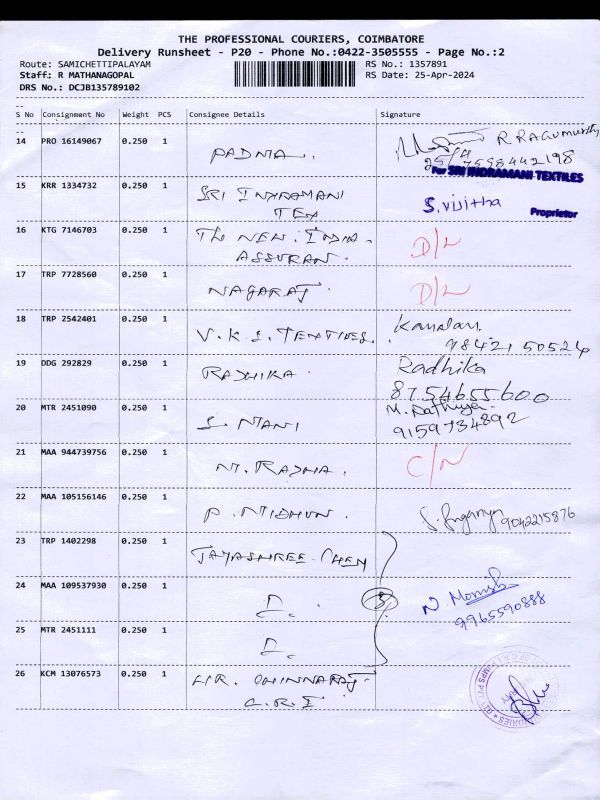 THE PROFESSIONAL COURIERS, COIMBATORE
Delivery Runsheet - P20 - Phone No.:0422-3505555 - Page No.:2
Route: SAMICHETTIPALAYAM
RS No.: 1357891
Staff: R MATHANAGOPAL
RS Date: 25-Apr-2024
DRS No.: DCJB135789102
S No Consignment No Weight PCS Consignee Details Signature
14 PRO 16149067 0.250 1 PADMA. R RAGUMURTHY
25/4 7598442198
For SRI INDRAMANI TEXTILES
15 KRR 1334732 0.250 1 SRI INDRAMANI S.Vijitha
TEX Proprietor
16 KTG 7146703 0.250 1 THE NEW. INDIA. D/L
ASSURAN.
17 TRP 7728560 0.250 1 NAGARAJ. D/L
18 TRP 2542401 0.250 1 V.K.S. TEXTILES.
98421 50524
19 DDG 292829 0.250 1 RADHIKA. Radhika
8754655600
20 MTR 2451090 0.250 1 S. MANI M. Sathiya
9159734892
21 MAA 944739756 0.250 1 M. RADHA. C/N
22 MAA 105156146 0.250 1 P. MIDHUN. 9042215876
23 TRP 1402298 0.250 1 JAYASHREE. CHEM
24 MAA 109537930 0.250 1 D. 3 N. Monish
9965590888
25 MTR 2451111 0.250 1 D.
26 KCM 13076573 0.250 1 HR. CHINNARAJ.
C.R.I